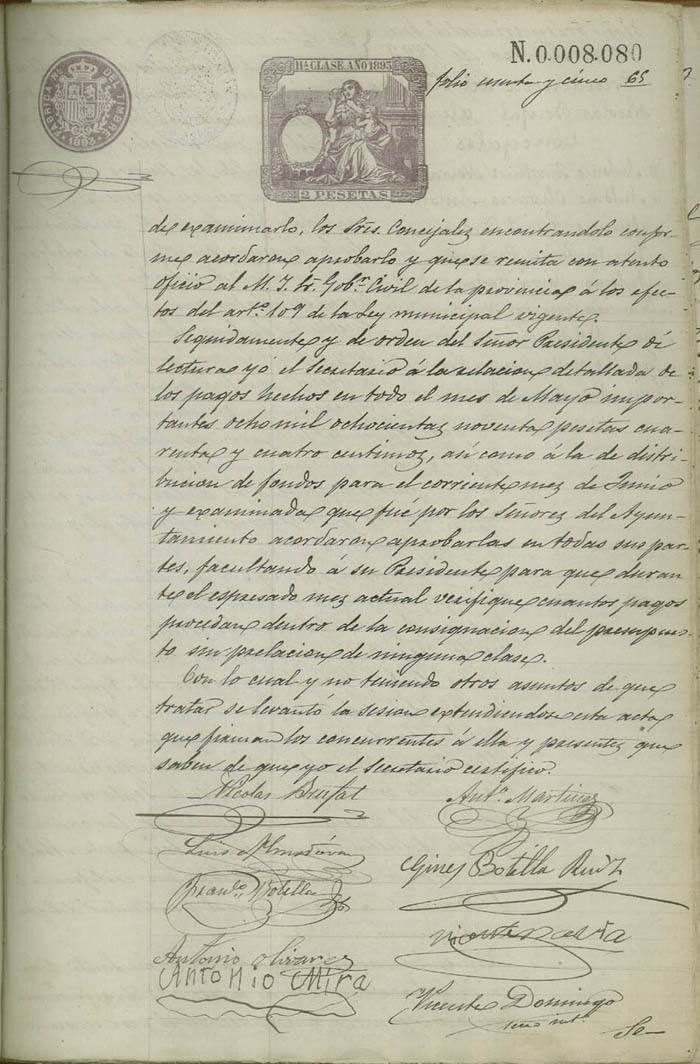 N.0.008.080
11ª CLASE AÑO 1893
FABRICA NAL. DEL TIMBRE
1893
2 PESETAS
folio sesenta y cinco 65
de examinarlo, los Sres. Concejales encontrandolo confor-
me acordaron aprobarlo y que se remita con atento
oficio al M. I. Sr. Gobr. Civil de la provincia á los efec-
tos del artº 109 de la Ley municipal vigente.
Seguidamente y de orden del Señor Presidente dí
lectura yó el Secretario á la relacion detallada de
los pagos hechos en todo el mes de Mayo impor-
tantes ocho mil ochocientas noventa pesetas cua-
renta y cuatro centimos, así como á la de distri-
bucion de fondos para el corriente mes de Junio
y examinada que fué por los Señores del Ayun-
tamiento acordaron aprobarlas en todas sus par-
tes, facultando á su Presidente para que duran-
te el espresado mes actual verifique cuantos pagos
procedan dentro de la consignacion del presupues-
to sin prelacion de ninguna clase.
Con lo cual y no teniendo otros asuntos de que
tratar se levantó la sesion extendiendose esta acta
que firman los concurrentes á ella y presentes que
saben de que yo el Secretario certifico.
Nicolas Brufal
Antº. Martinez
Luis Almodóvar
Gines Botella Ruiz
Botella
Vicente
Antonio Olivares
Antonio Mira
Vicente Domingo
Srio intº.
Se—